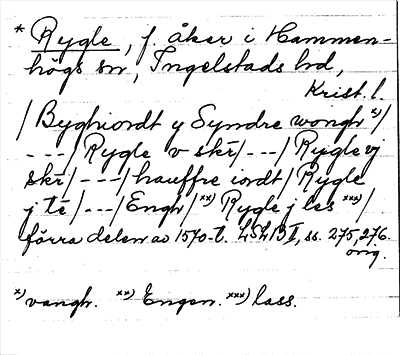 * Rygle, f. åker i Hammen-
högs sn, Ingelstads hd,
Krist. l.
/ Byghiordt y Syndre wongh x)/
---/ Rygle v skr̄/---/ Rygle vj
skr̄/---/ hauffre iordt/ Rygle
j tē/---/ Engh/ xx) Rygle j les xxx)/
förra delen av 1570-t. LSLB II, ss. 275, 276
orig.
x) vangh. xx) Engen. xxx) lass.